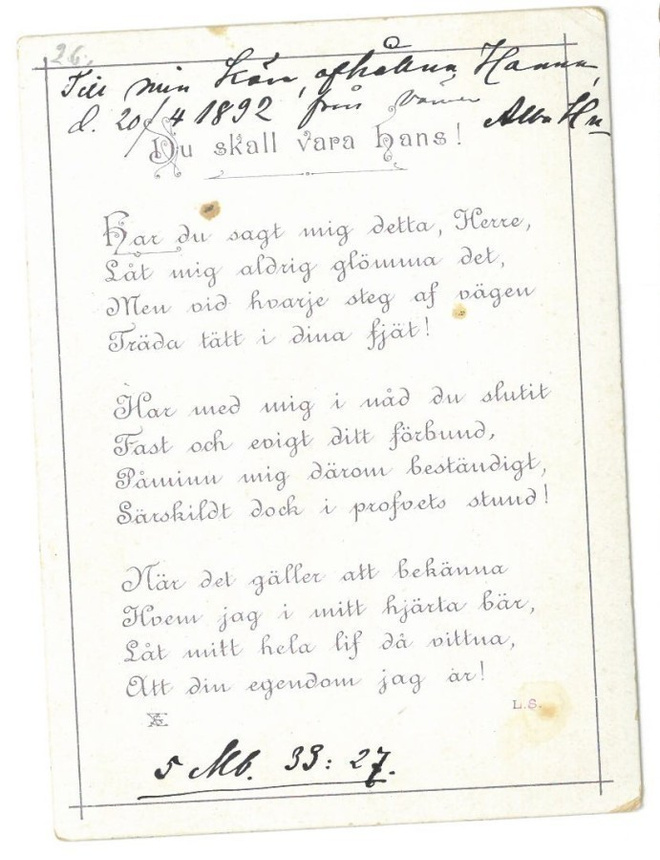 26.
Till min kära, afhållna Hanna,
d. 20/4 1892 från vännen
Alba
Du skall vara hans!
Har du sagt mig detta, Herre,
Låt mig aldrig glömma det,
Men vid hvarje steg af vägen
Träda tätt i dina fjät!
Har med mig i nåd du slutit
Fast och evigt ditt förbund,
Påminn mig därom beständigt,
Särskildt dock i profvets stund!
När det gäller att bekänna
Hvem jag i mitt hjärta bär,
Låt mitt hela lif då vittna,
Att din egendom jag är!
L.S.
5 Mb. 33: 27.